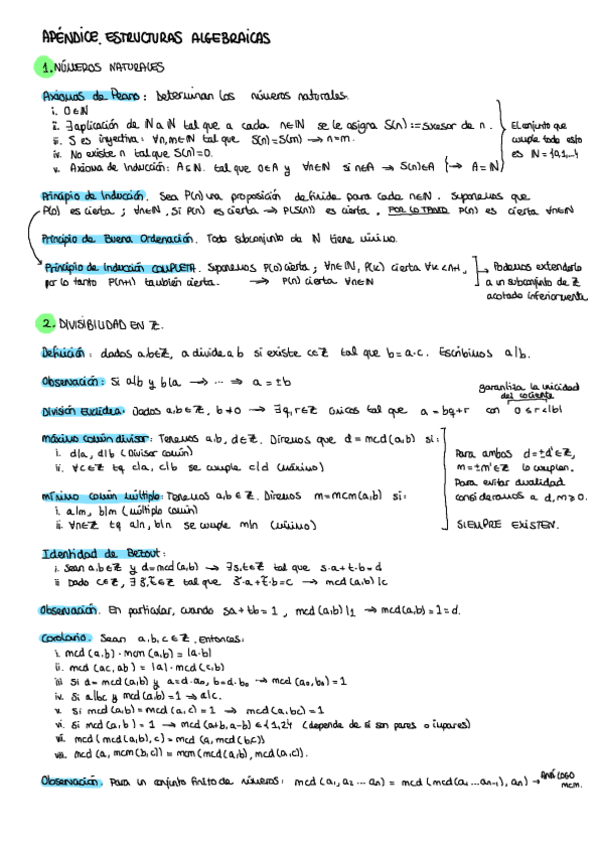 APÉNDICE. ESTRUCTURAS ALGEBRAICAS
1. NÚMEROS NATURALES
Axiomas de Peano: Determinan los números naturales.
i. 0∈ℕ
ii. ∃ aplicación de ℕ a ℕ tal que a cada n∈ℕ se le asigna S(n):= sucesor de n.
iii. S es inyectiva: ∀n,m∈ℕ tal que S(n)=S(m) → n=m.
iv. No existe n tal que S(n)=0.
v. Axioma de Inducción: A⊆ℕ. tal que 0∈A y ∀n∈ℕ si n∈A → S(n)∈A → A=ℕ
El conjunto que
cumple todo esto
es ℕ={0,1,...}
Principio de Inducción. Sea P(n) una proposición definida para cada n∈ℕ. Suponemos que
P(0) es cierta ; ∀n∈ℕ, Si P(n) es cierta → P(S(n)) es cierta. POR LO TANTO P(n) es cierta ∀n∈ℕ
Principio de Buena Ordenación. Todo subconjunto de ℕ tiene mínimo.
Principio de Inducción COMPLETA. Suponemos P(0) cierta ; ∀n∈ℕ, P(k) cierta ∀k<n+1,
por lo tanto P(n+1) también cierta. → P(n) cierta ∀n∈ℕ
Podemos extenderlo
a un subconjunto de ℤ
acotado inferiormente
2. DIVISIBILIDAD EN ℤ.
Definición: dados a,b∈ℤ, a divide a b si existe c∈ℤ tal que b=a·c. Escribimos a|b.
Observación: Si a|b y b|a → ... ⇒ a=±b
garantiza la unicidad
del cociente
División Euclídea. Dados a,b∈ℤ, b≠0 → ∃q,r∈ℤ únicos tal que a=bq+r con 0≤r<|b|
máximo común divisor: Tenemos a,b, d∈ℤ. Diremos que d=mcd(a,b) si:
i. d|a, d|b (Divisor común)
ii. ∀c∈ℤ tq c|a, c|b se cumple c|d (máximo)
mínimo común múltiplo: Tenemos a,b∈ℤ. Diremos m=mcm(a,b) si:
i. a|m, b|m (múltiplo común)
ii. ∀n∈ℤ tq a|n, b|n se cumple m|n (mínimo)
Para ambos d=±d'∈ℤ,
m=±m'∈ℤ lo cumplen.
Para evitar dualidad
consideramos a d,m≥0.
SIEMPRE EXISTEN.
Identidad de Bezout:
i. Sean a,b∈ℤ y d=mcd(a,b) → ∃s,t∈ℤ tal que s·a+t·b=d
ii Dado c∈ℤ, ∃ s̃,t̃∈ℤ tal que s̃·a+t̃·b=c → mcd(a,b)|c
Observación. En particular, cuando sa+tb=1, mcd(a,b)|1 → mcd(a,b)=1=d.
Corolario. Sean a,b,c∈ℤ. Entonces:
i. mcd(a,b)·mcm(a,b)=|a·b|
ii. mcd(ac,ab)=|a|·mcd(c,b)
iii Si d=mcd(a,b) y a=d·a₀, b=d·b₀ → mcd(a₀,b₀)=1
iv. Si a|bc y mcd(a,b)=1 → a|c.
v. Si mcd(a,b)=mcd(a,c)=1 → mcd(a,bc)=1
vi. Si mcd(a,b)=1 → mcd(a+b,a-b)∈{1,2} (depende de si son pares o impares)
vii. mcd(mcd(a,b),c)=mcd(a,mcd(b,c))
viii. mcd(a,mcm(b,c))=mcm(mcd(a,b),mcd(a,c)).
Observación. Para un conjunto finito de números: mcd(a₁,a₂...aₙ)=mcd(mcd(a₁...aₙ₋₁),aₙ) → ANÁLOGO
mcm.